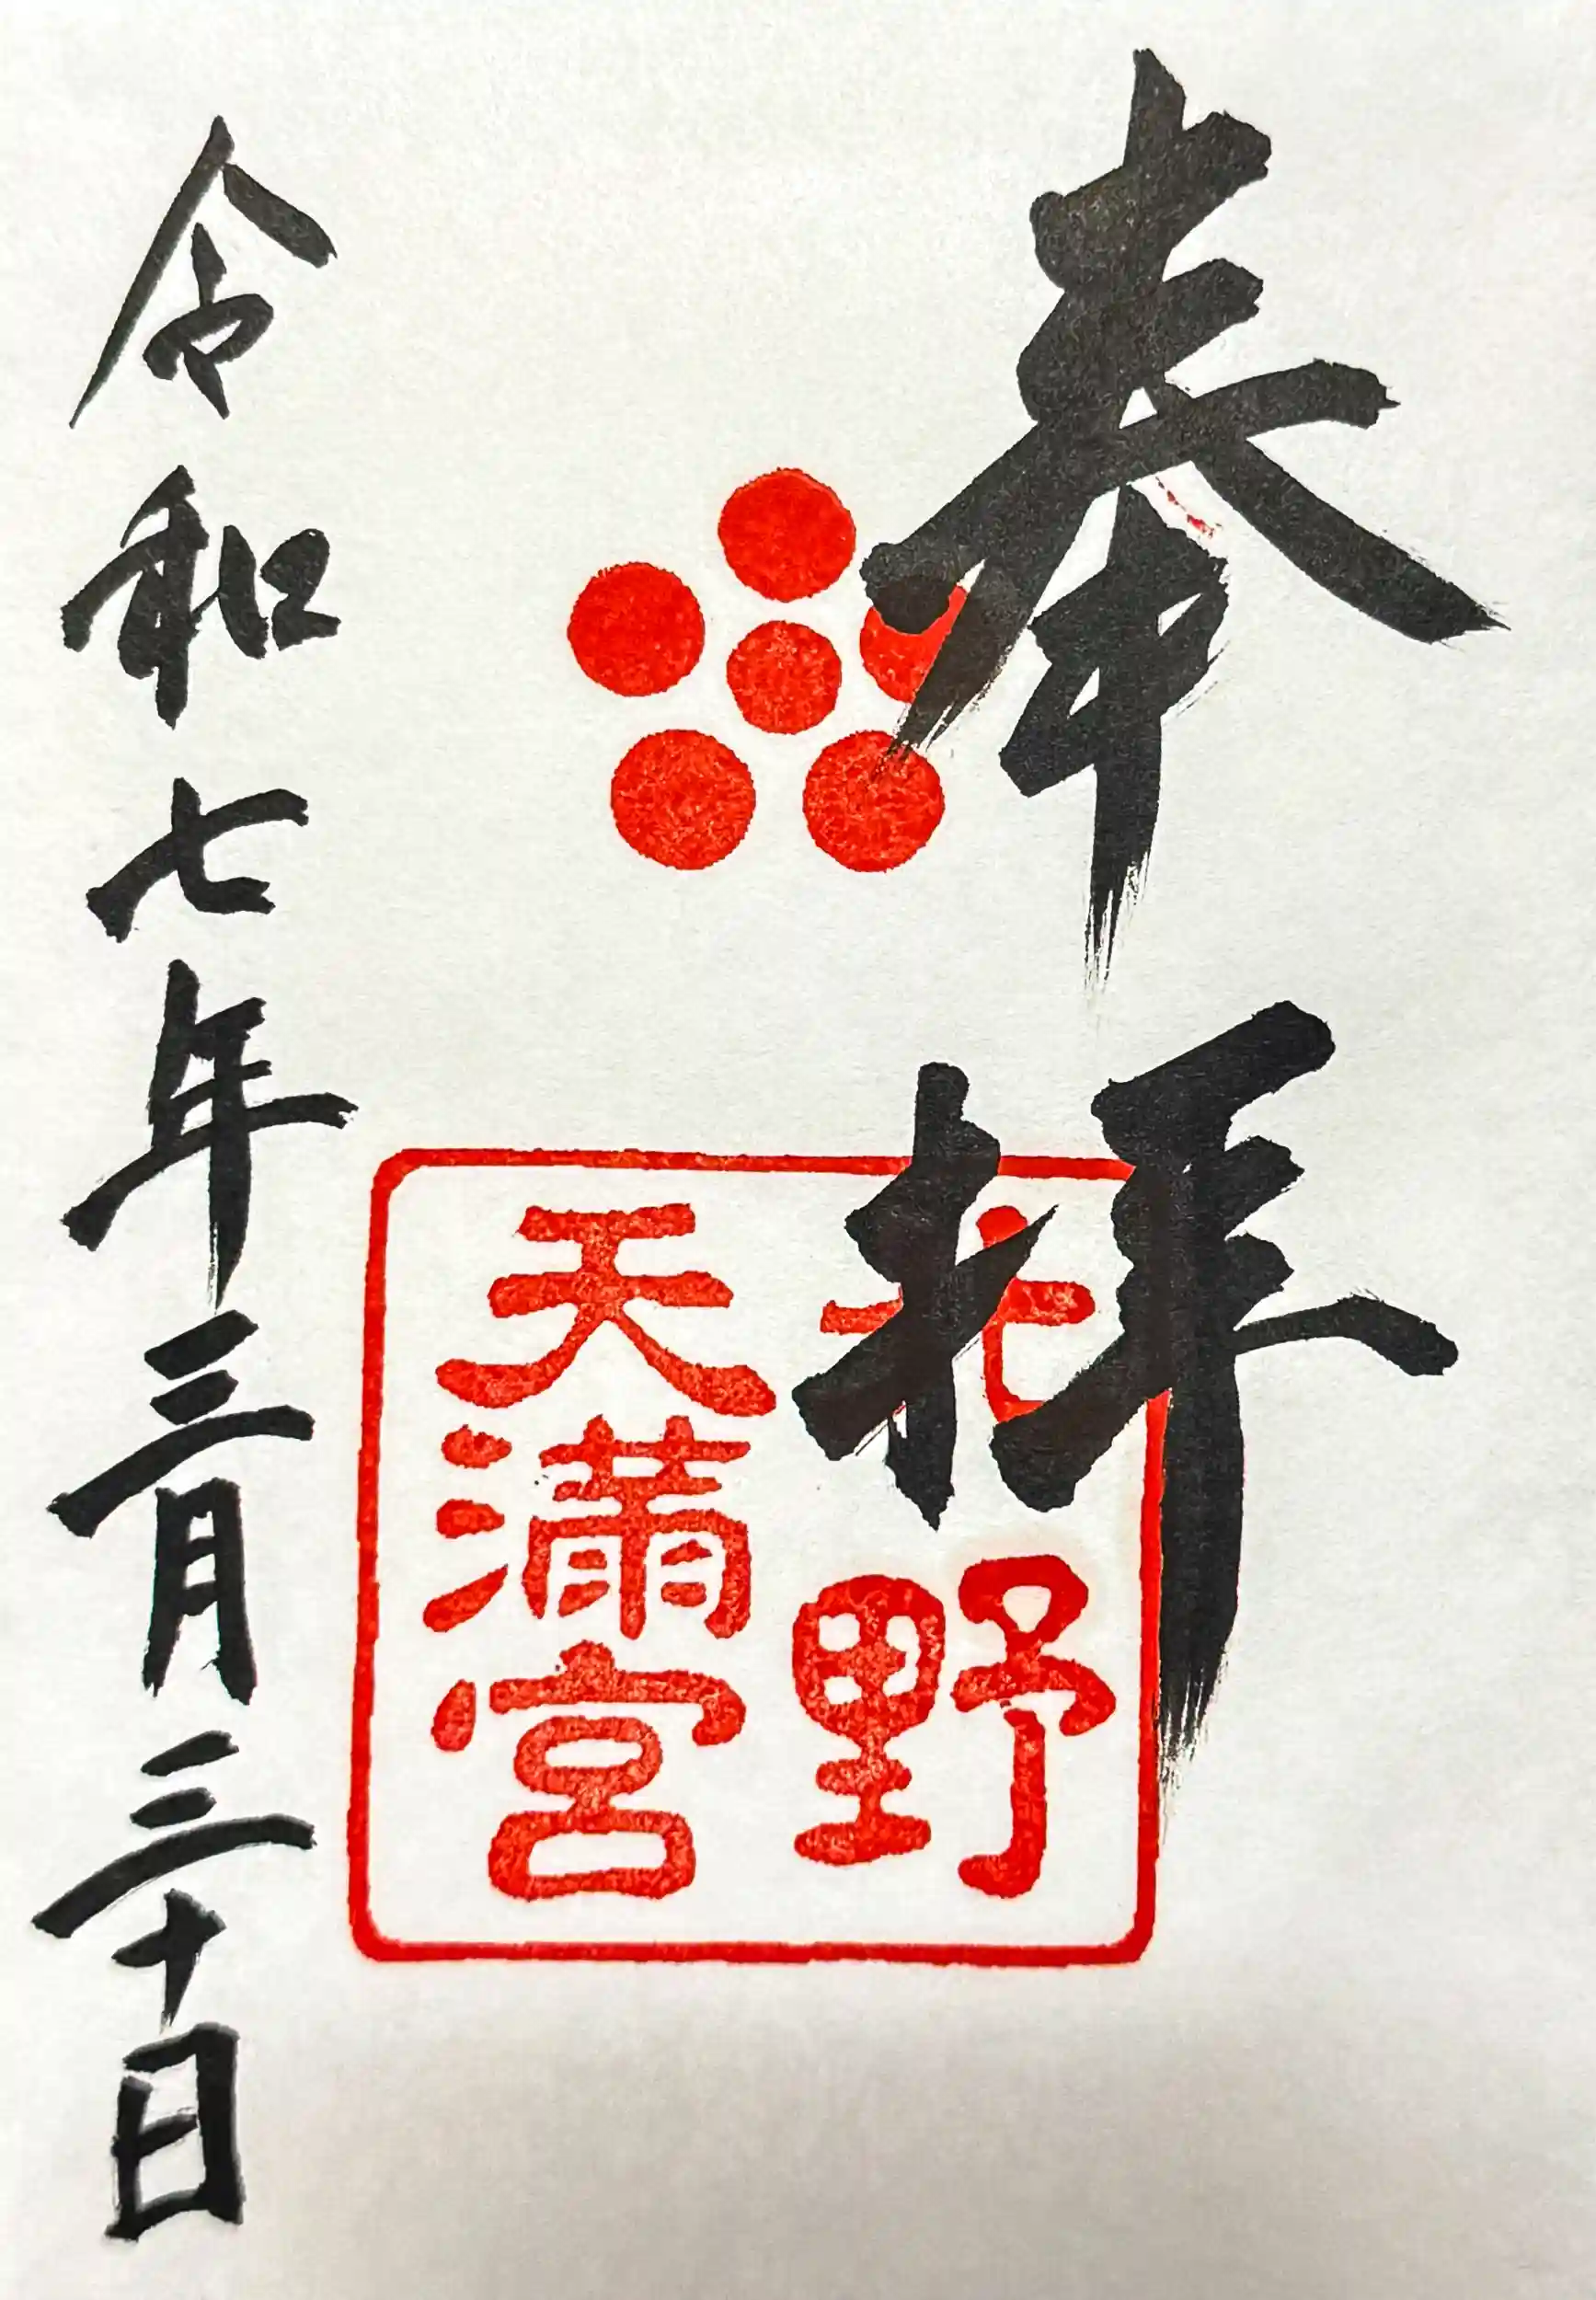 奉拝
北野
天満宮
令和七年三月三十日